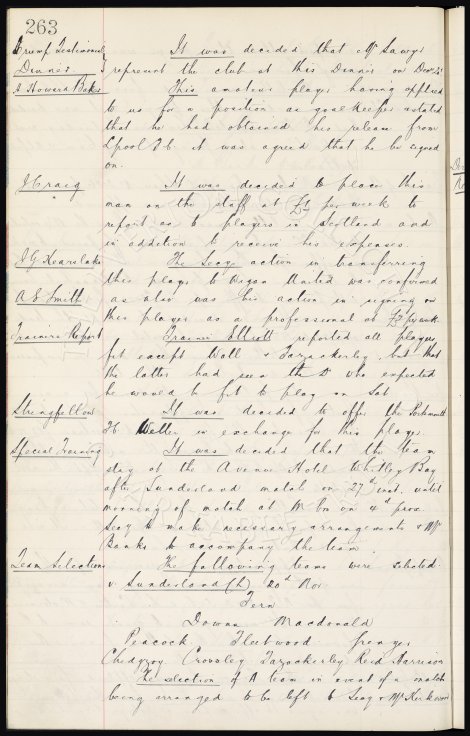 263
Crump Testimonial
Dinner
It was decided that Mr Sawyer
represent the club at this Dinner on Dec
A Howard Baker
This amateur player having applied
to us for a position as goalkeeper & stated
that he had obtained his release from
Lpool F C. it was agreed that he be signed
on.
J Craig
It was decided to place this
man on the staff at £1 per week to
report as to players in Scotland and
in addition to receive his expenses.
J G Kearslake
The Secys action in transferring
this player to Wigan United was confirmed
A S Smith
as also was his action in signing on
this player as a professional at per week.
Trainers Report
Trainer Elliott reported all players
fit except Wall & Fazackerley, but that
the latter had seen the Dr who expected
he would be fit to play on Sat
Stringfellow
It was decided to offer the Portsmouth
FC Weller in exchange for this player.
Special Training
It was decided that the team
stay at the Avenue Hotel Whitley Bay
after Sunderland match on 27th inst. until
morning of match at M'bro on 4th prox
Secy to make necessary arrangements & Mr
Banks to accompany the team.
Team Selection
The following teams were selected.
v. Sunderland (h) 20th Nov
Fern
Downs Macdonald
Peacock Fleetwood Grenyer
Chedgzoy Crossley Fazackerley Reid Harrison
The selection of A team in event of a match
being arranged to be left to Secy & Mr Kirkwood